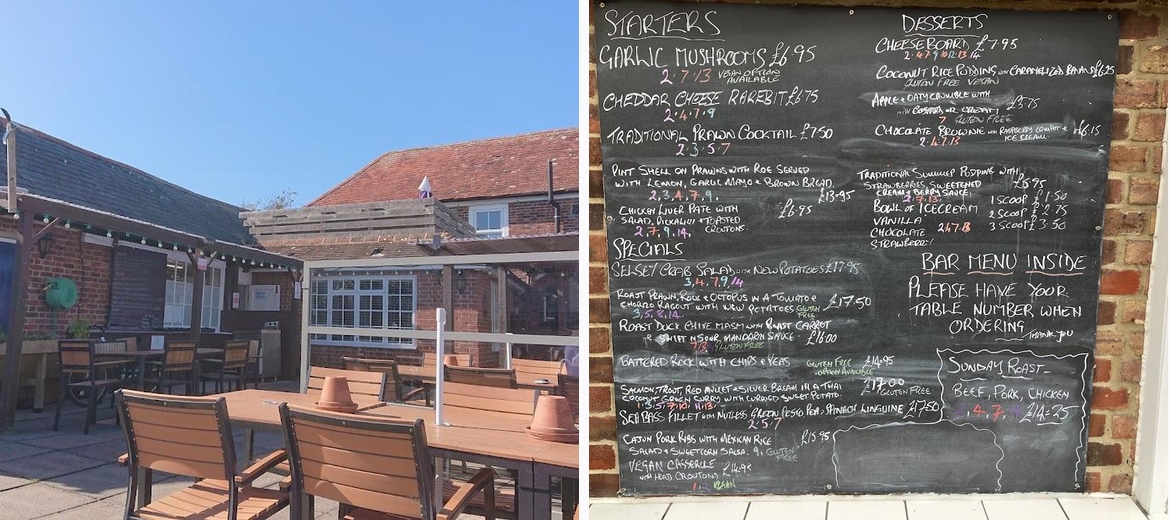 STARTERS
GARLIC MUSHROOMS £6.95
2·7·13 VEGAN OPTION
AVAILABLE
CHEDDAR CHEESE RAREBIT £6.75
2·4·7·9
TRADITIONAL PRAWN COCKTAIL £7.50
2·3·5·7
PINT SHELL ON PRAWNS WITH ROE SERVED
WITH LEMON, GARLIC MAYO & BROWN BREAD.
2,3,4,7,9. £13.95
CHICKEN LIVER PATE WITH £6.95
SALAD, PICKALILLI & TOASTED
2,7,9,14. CROUTONS.
SPECIALS
SELSEY CRAB SALAD WITH NEW POTATOES £17.95
3,4,7,9,14
ROAST PRAWN, ROCK & OCTOPUS IN A TOMATO &
CHORIZO RAGOUT WITH NEW POTATOES GLUTEN FREE £17.50
3,5,8,14.
ROAST DUCK CHIVE MASH WITH ROAST CARROT
SWEET N SOUR, MANDARIN SAUCE £16.00
GLUTEN FREE
BATTERED ROCK WITH CHIPS & PEAS GLUTEN FREE £14.95
OPTION AVAILABLE
SALMON, TROUT, RED MULLET & SILVER BREAM IN A THAI £17.00
COCONUT GREEN CURRY WITH CURRIED SWEET POTATO. GLUTEN FREE
SEABASS FILLET WITH MUSSELS GREEN PESTO PEA, SPINACH LINGUINE £17.50
2·5·7
CAJUN PORK RIBS WITH MEXICAN RICE £15.95
SALAD & SWEETCORN SALSA. 9, GLUTEN FREE
VEGAN CASSEROLE £14.95
WITH HERB CROUTONS
VEGAN
DESSERTS
CHEESEBOARD £7.95
2·4·7·9·10·12·13·14
COCONUT RICE PUDDING WITH CARAMELIZED BANANA £6.25
GLUTEN FREE VEGAN
APPLE & OATY CRUMBLE WITH
CUSTARD OR CREAM £5.75
7 GLUTEN FREE
CHOCOLATE BROWNIE WITH RASPBERRY COMPOTE & £6.15
ICE CREAM.
2·4·7·13
TRADITIONAL SUMMER PUDDING WITH
STRAWBERRIES, SWEETENED £5.95
CREAM & BERRY SAUCE
2·7·13.
BOWL OF ICECREAM 1 SCOOP £1.50
VANILLA 2 SCOOP £2.75
CHOCOLATE 2·4·7·13 3 SCOOP £3.50
STRAWBERRY
BAR MENU INSIDE
PLEASE HAVE YOUR
TABLE NUMBER WHEN
ORDERING THANK-YOU
SUNDAY ROAST
BEEF, PORK, CHICKEN
4, 7, £14.25